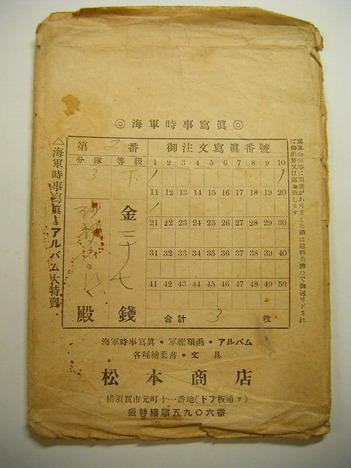 ◎海軍時事寫眞◎
第 2 番
御注文寫眞番號
分隊 等級
1 2 3 4 5 6 7 8 9 10
3
11 12 13 14 15 16 17 18 19 20
21 22 23 24 25 26 27 28 29 30
31 32 33 34 35 36 37 38 39 40
41 42 43 44 45 46 47 48 49 50
金二十七錢
殿
合計 3 枚
△海軍時事寫眞アルバム大特賣
海軍時事寫眞・軍艦額画・アルバム
各種繪葉書・文具
松本商店
横須賀市元町十一番地(ドブ板通り)
振替横濱五九〇六番